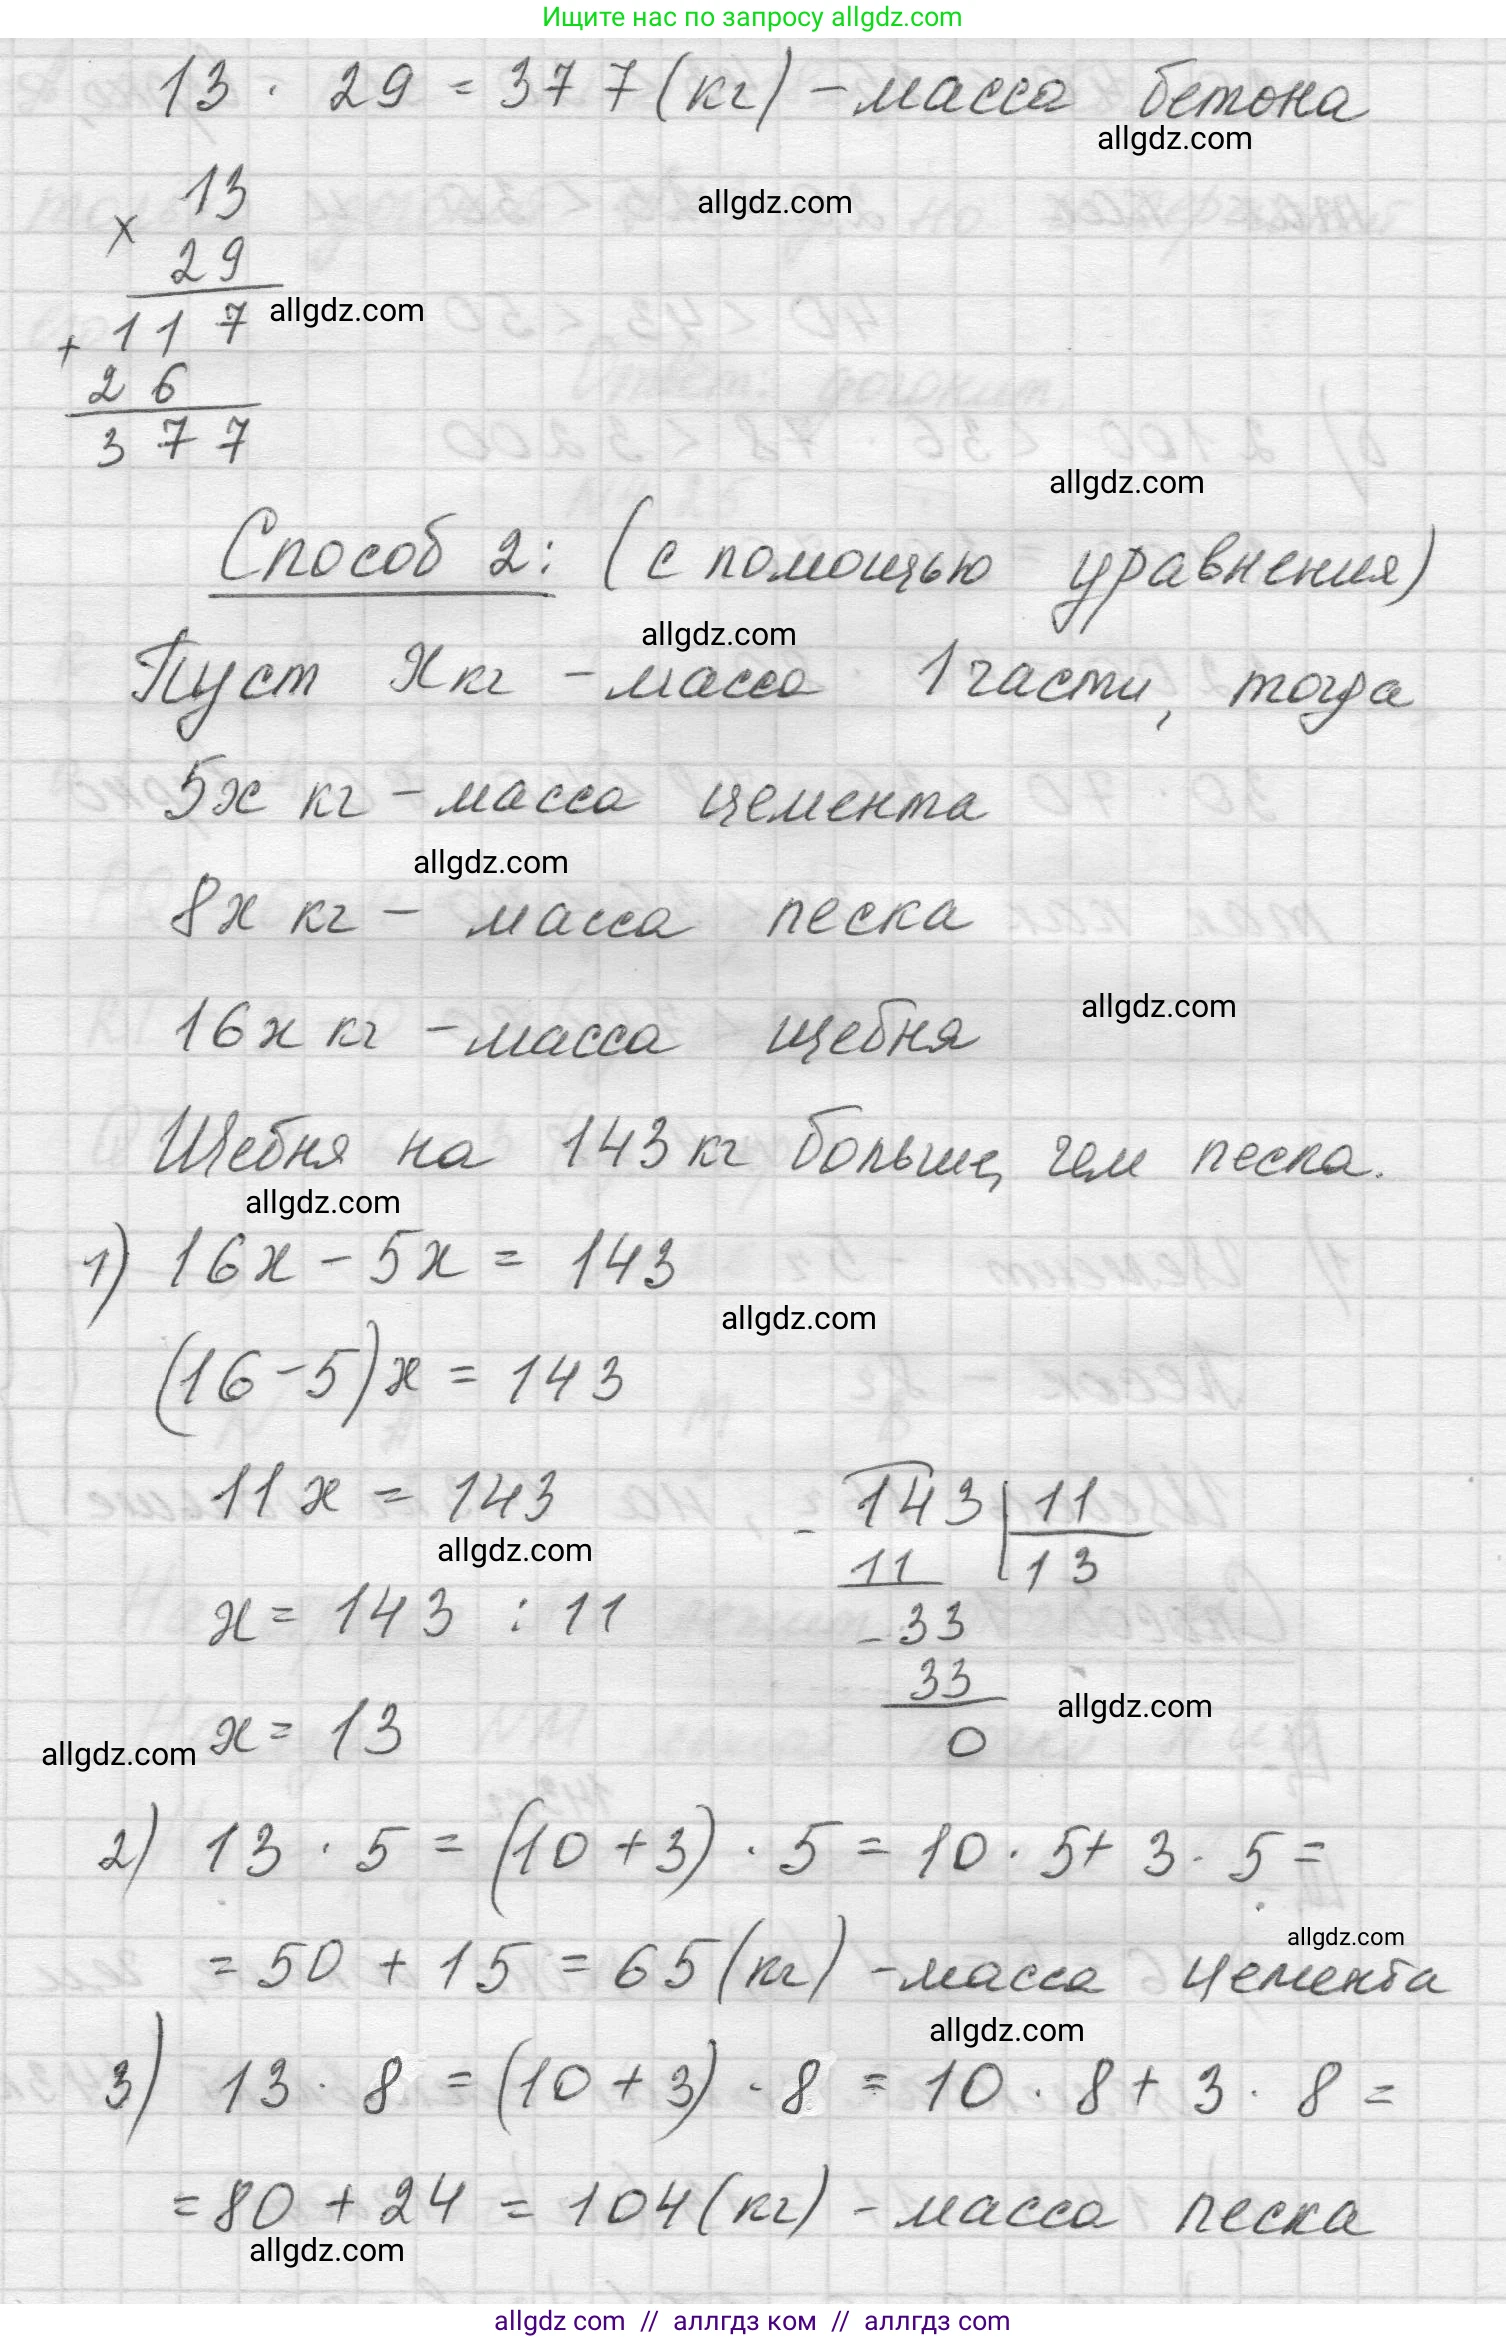 Ищите нас по запросу allgdz.com
13 · 29 = 377 (кг) - масса бетона
allgdz.com
13
allgdz.com
×
29
allgdz.com
117
+
26
377
allgdz.com
Способ 2: (с помощью уравнения)
allgdz.com
Пуст x кг - масса 1 части, тогда
5x кг - масса цемента
allgdz.com
8x кг - масса песка
allgdz.com
16x кг - масса щебня
Щебня на 143 кг больше, чем песка.
allgdz.com
1) 16x - 5x = 143
allgdz.com
(16 - 5)x = 143
11x = 143
- 143 | 11
allgdz.com
11 13
x = 143 : 11
- 33
33
allgdz.com
x = 13
0
allgdz.com
2) 13 · 5 = (10 + 3) · 5 = 10 · 5 + 3 · 5 =
allgdz.com
= 50 + 15 = 65 (кг) - масса цемента
allgdz.com
3) 13 · 8 = (10 + 3) · 8 = 10 · 8 + 3 · 8 =
= 80 + 24 = 104 (кг) - масса песка
allgdz.com
allgdz.com // аллгдз ком // аллгдз.com